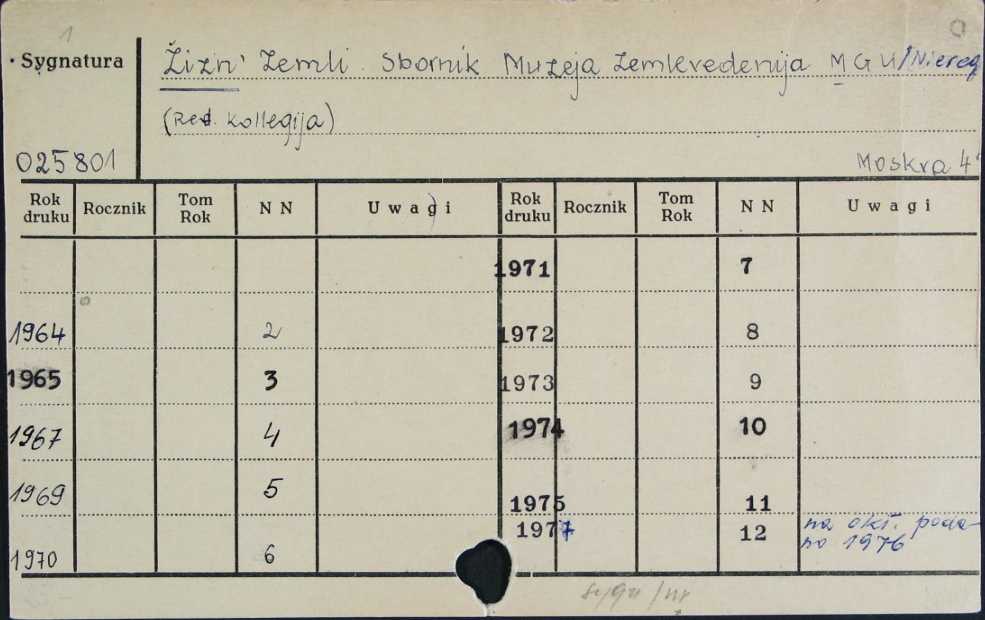 1
Sygnatura
Žizn' Zemli. Sbornik Muzeja Zemlevedenija MGU /Niereg
(Red. Kollegija)
025801
Moskva 4°
Rok druku Rocznik Tom Rok NN Uwagi Rok druku Rocznik Tom Rok NN Uwagi
1971 7
1964 2 1972 8
1965 3 1973 9
1967 4 1974 10
1969 5 1975 11
1970 6 1977 12 na okł. poda-
no 1976